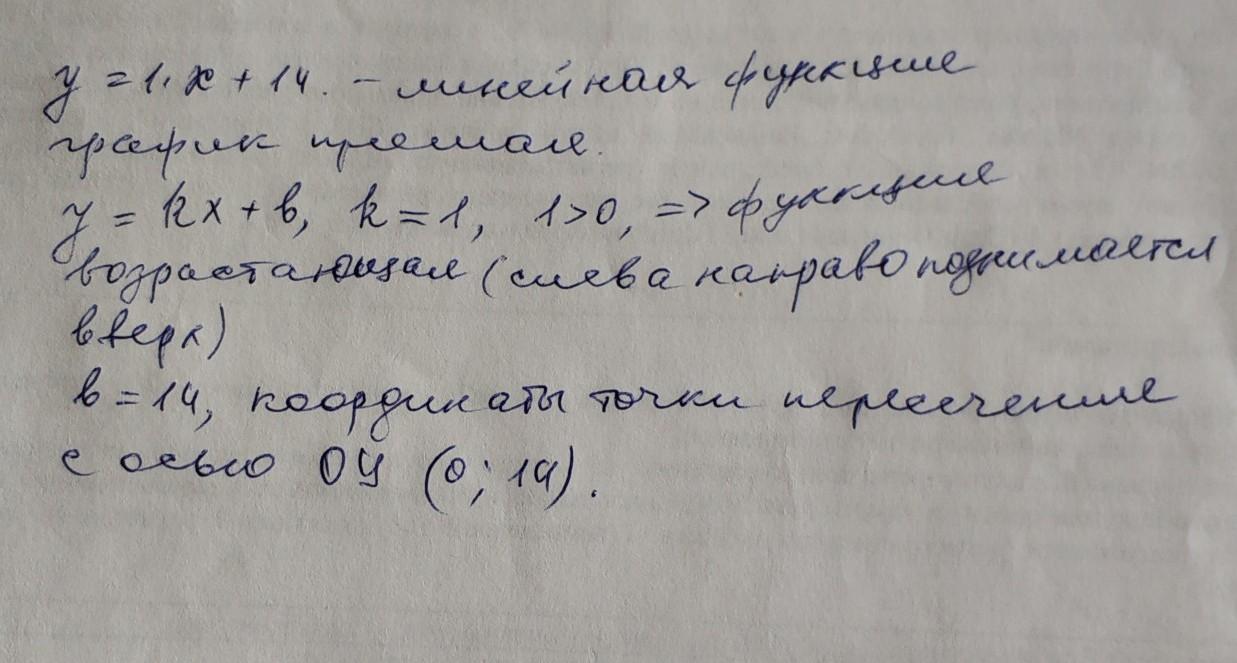 y = 1·x + 14. – линейная функция
график прямая.
y = kx + b, k = 1, 1>0, => функция
возрастающая (слева направо поднимается
вверх)
b = 14, координаты точки пересечения
с осью ОУ (0; 14).